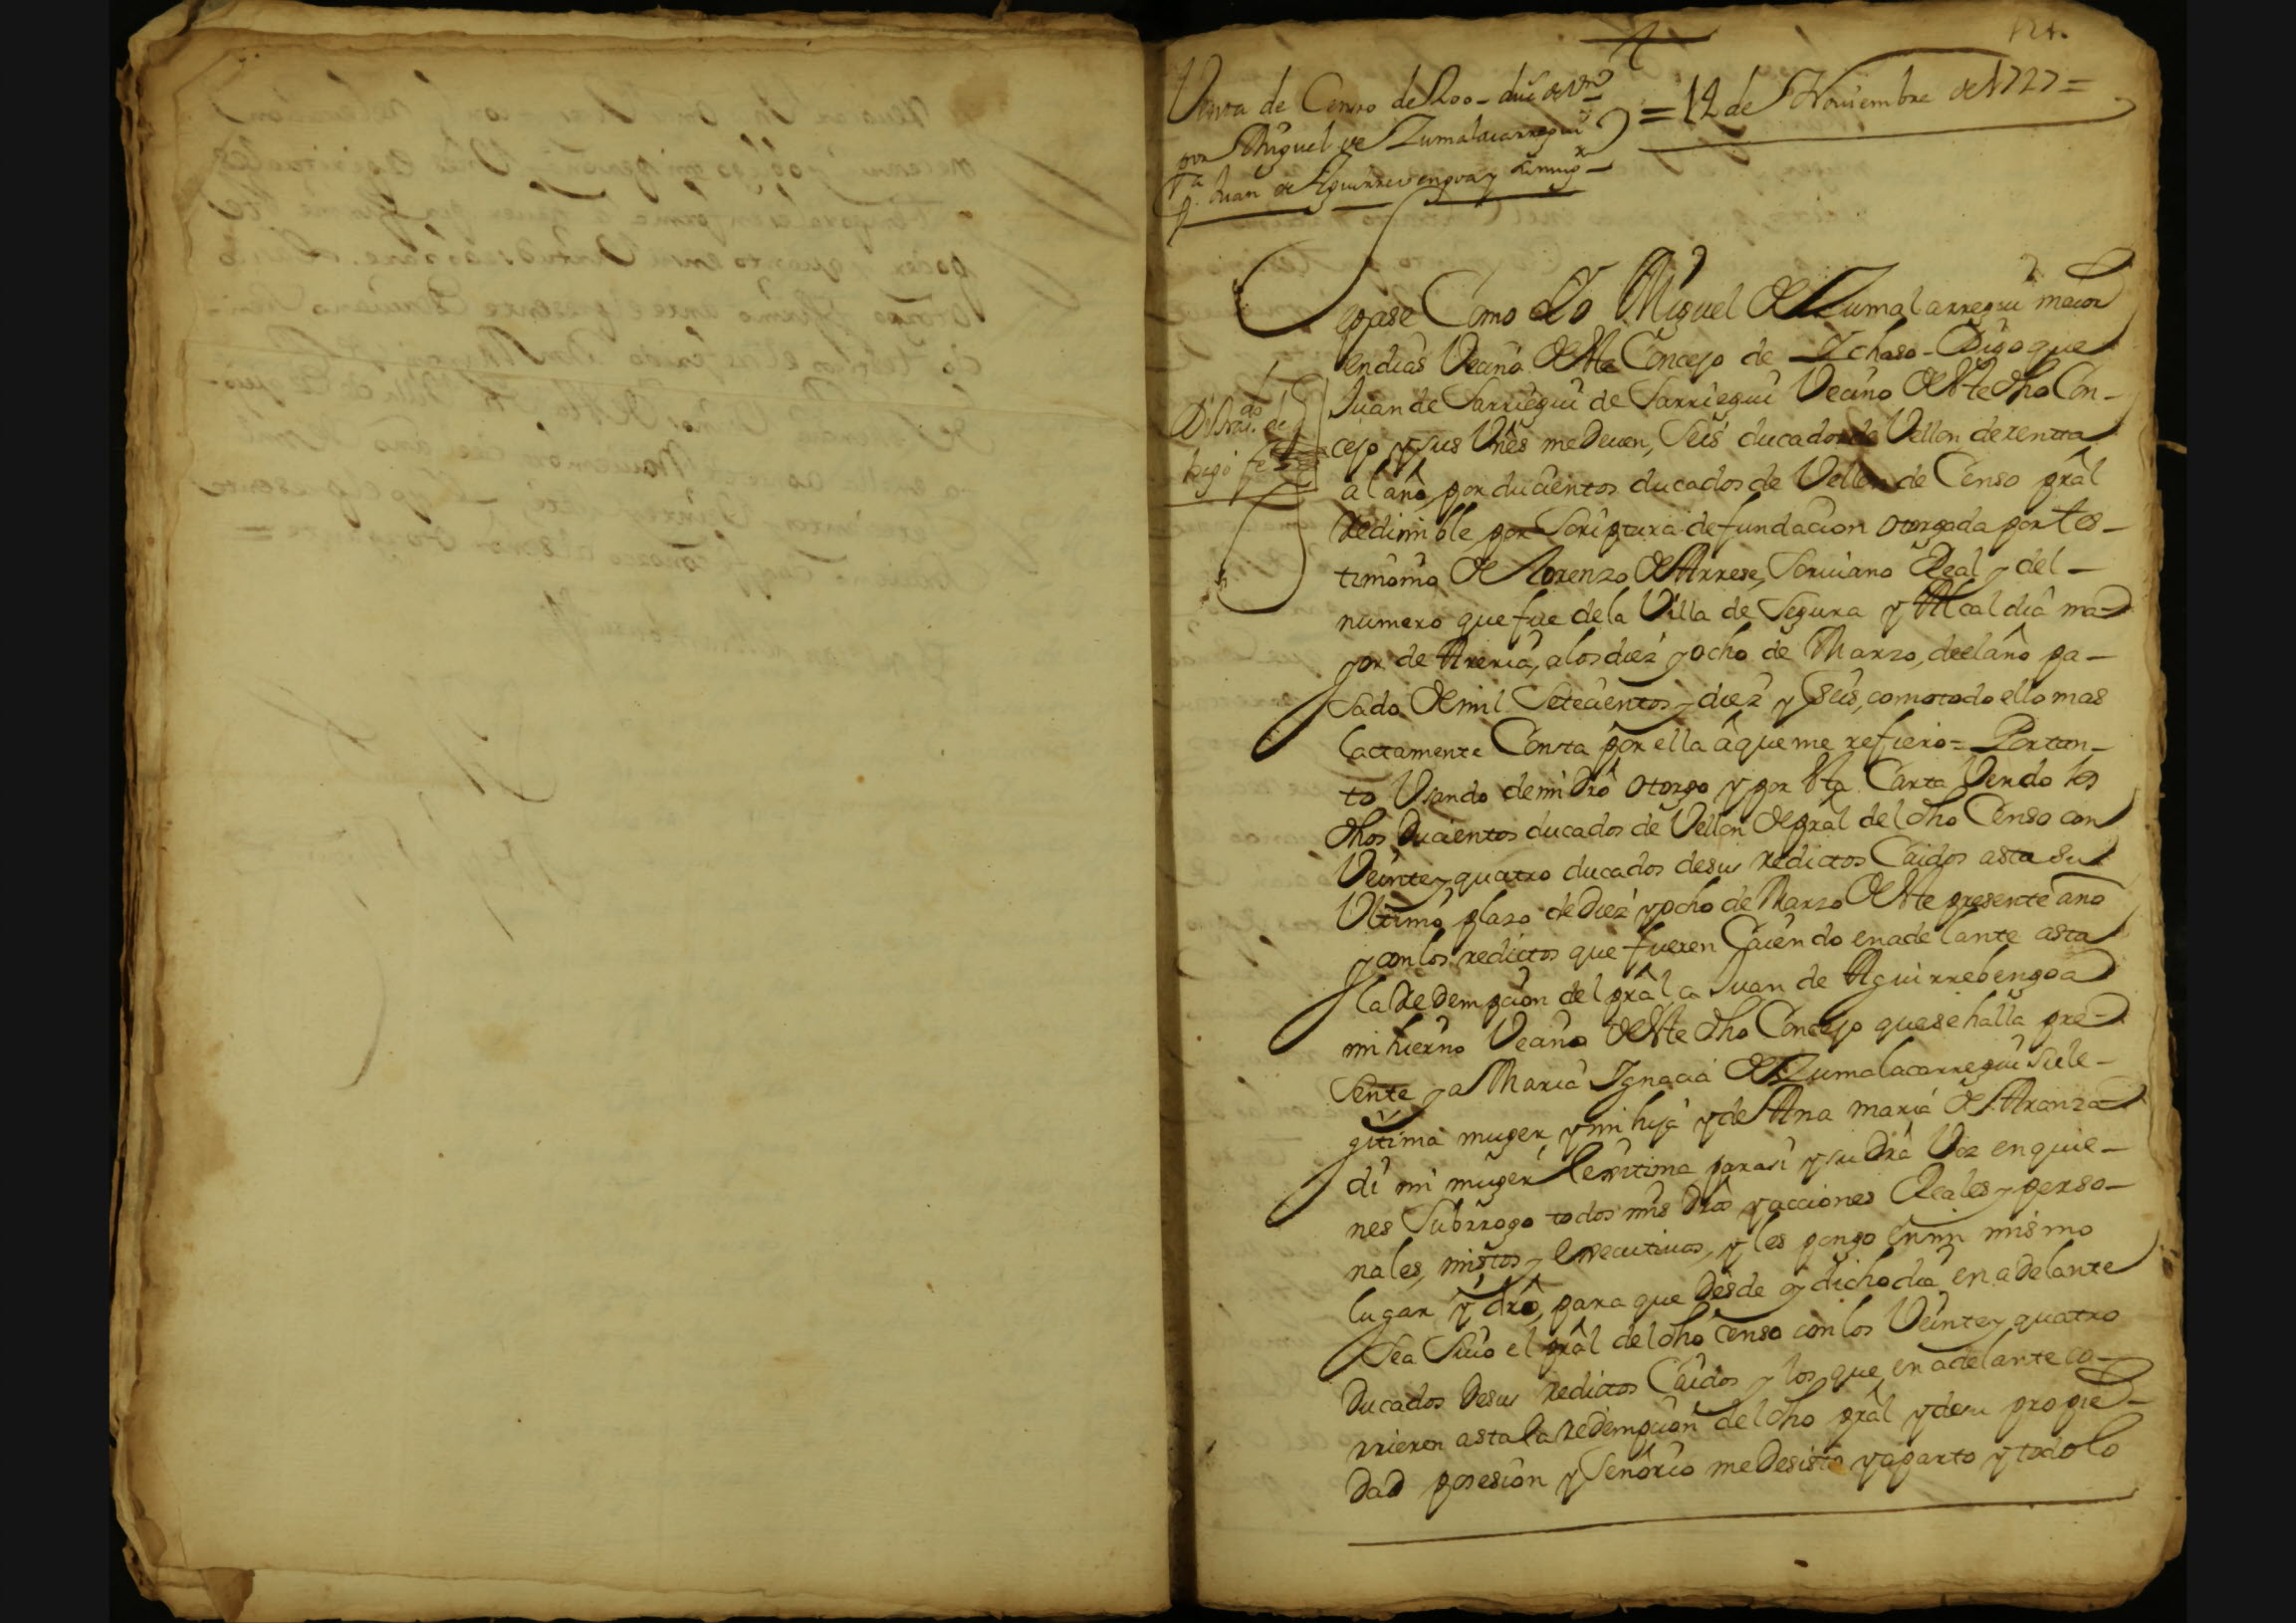 124.
Venta de Censo de 200 - ducs de Vn
por Miguel de Zumalacarregui
Pa Juan de Aguirrevengoa y su mugr
= 12 de Noviembre de 1727 =
Sepase Como Yo Miguel de Zumalarregui maior
en dias Vecino deste Concejo de Ychaso - Digo que
Juan de Sarriegui de Sarriegui Vecino deste dho Con-
cejo y sus Vnes me Deven, Seis ducados de Vellon de renta
al año por ducientos ducados de Vellon de Censo pral
Redimible por Scriptura de fundacion otorgada por tes-
timonio de Lorenzo de Arrese, Scrivano Real y del -
numero que fue dela Villa de Segura y Alcaldia ma-
yor de Areria, alos diez y ocho de Marzo, deel año pa-
sado de mil Setecientos y diez y seis, como todo ello mas
lactamente Consta por ella â que me refiero = Portan-
to Usando de mi dro otorgo y por esta Carta Vendo los
dhos Ducientos ducados de Vellon de pral del dho Censo con
Veinte y quatro ducados desus redictos Caidos asta su
Vltimo plaso de Diez y ocho de Marzo deste presente año
y con los redictos que fueren Caiendo en adelante asta
la Redempcion del pral a Juan de Aguirrebengoa
mi hierno Vecino deste dho Concejo que se halla pre-
sente y a Maria Ignacia de Zumalacarregui su le-
gitima muger, y mi hija y de Ana maria de Aranza
di mi muger lexitima para si y su dra Voz en quie-
nes Subrrogo todos mis dros y acciones Reales y perso-
nales, mistos y executivos, y les pongo en mi mismo
lugar y dro, para que desde oy dicho dia en adelante
Sea Suio el pral del dho censo con los Veinte y quatro
Ducados Desus redictos Caidos y los que en adelante co-
rrieren asta la redempcion del dho pral y desu propie-
dad posesion y Senorio me Desisto y aparto y todo lo